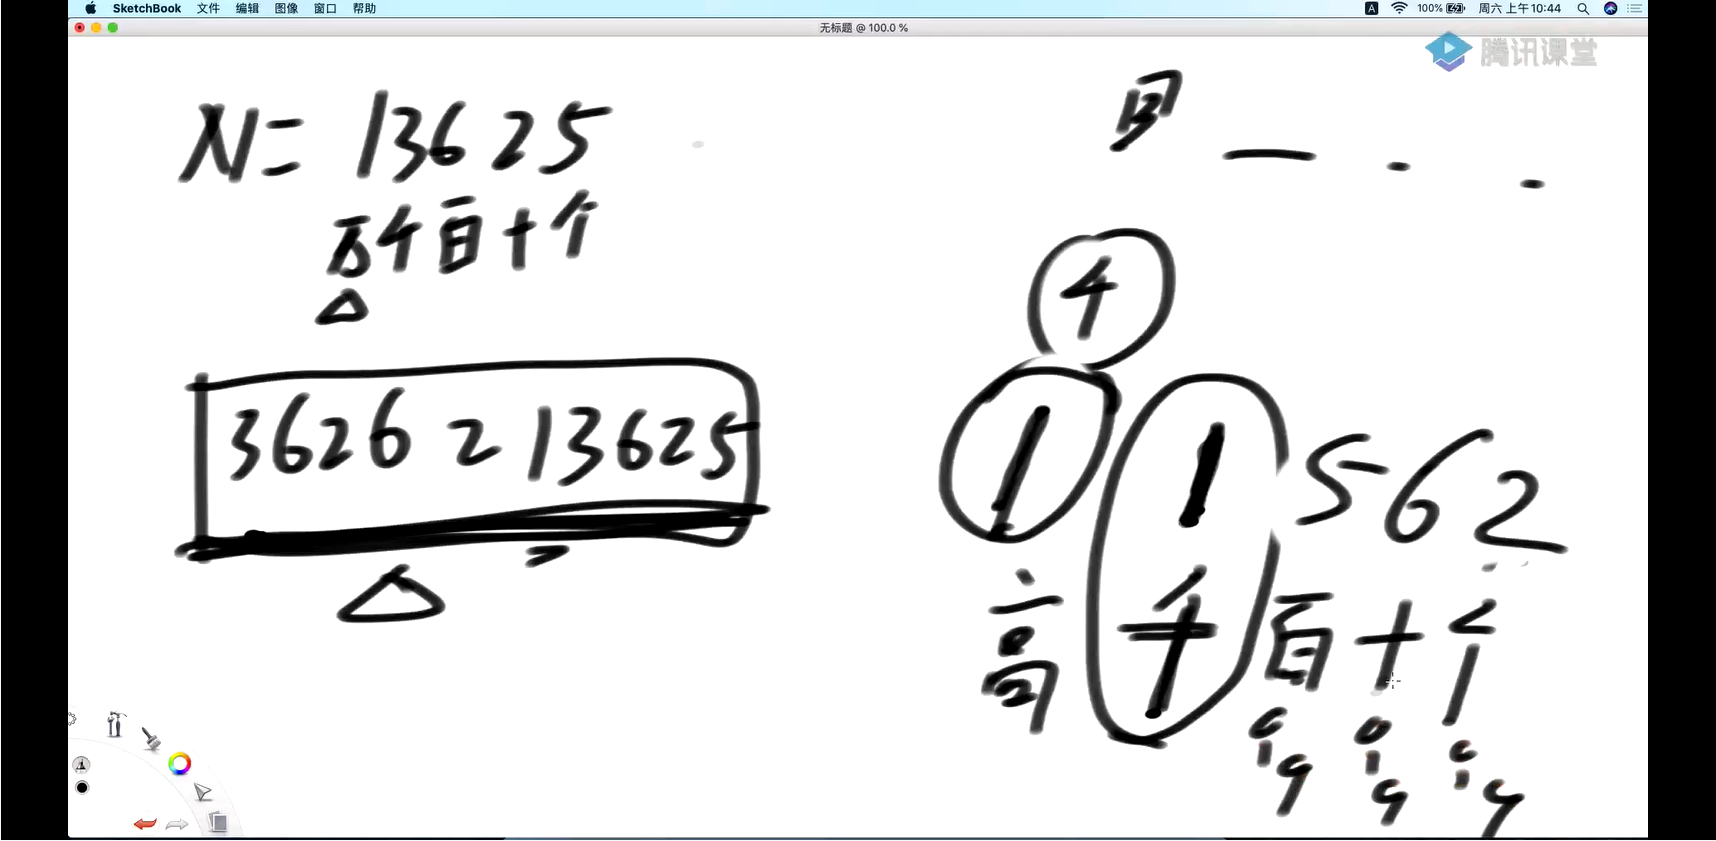 SketchBook 文件 编辑 图像 窗口 帮助
A 100% 周六 上午10:44
无标题 @ 100.0 %
腾讯课堂
N= 13625
万千百十个
3626 2 13625
4
1 1 5 6 2
高 千 百 十 个
0 0 0
1 1 1
9 9 9